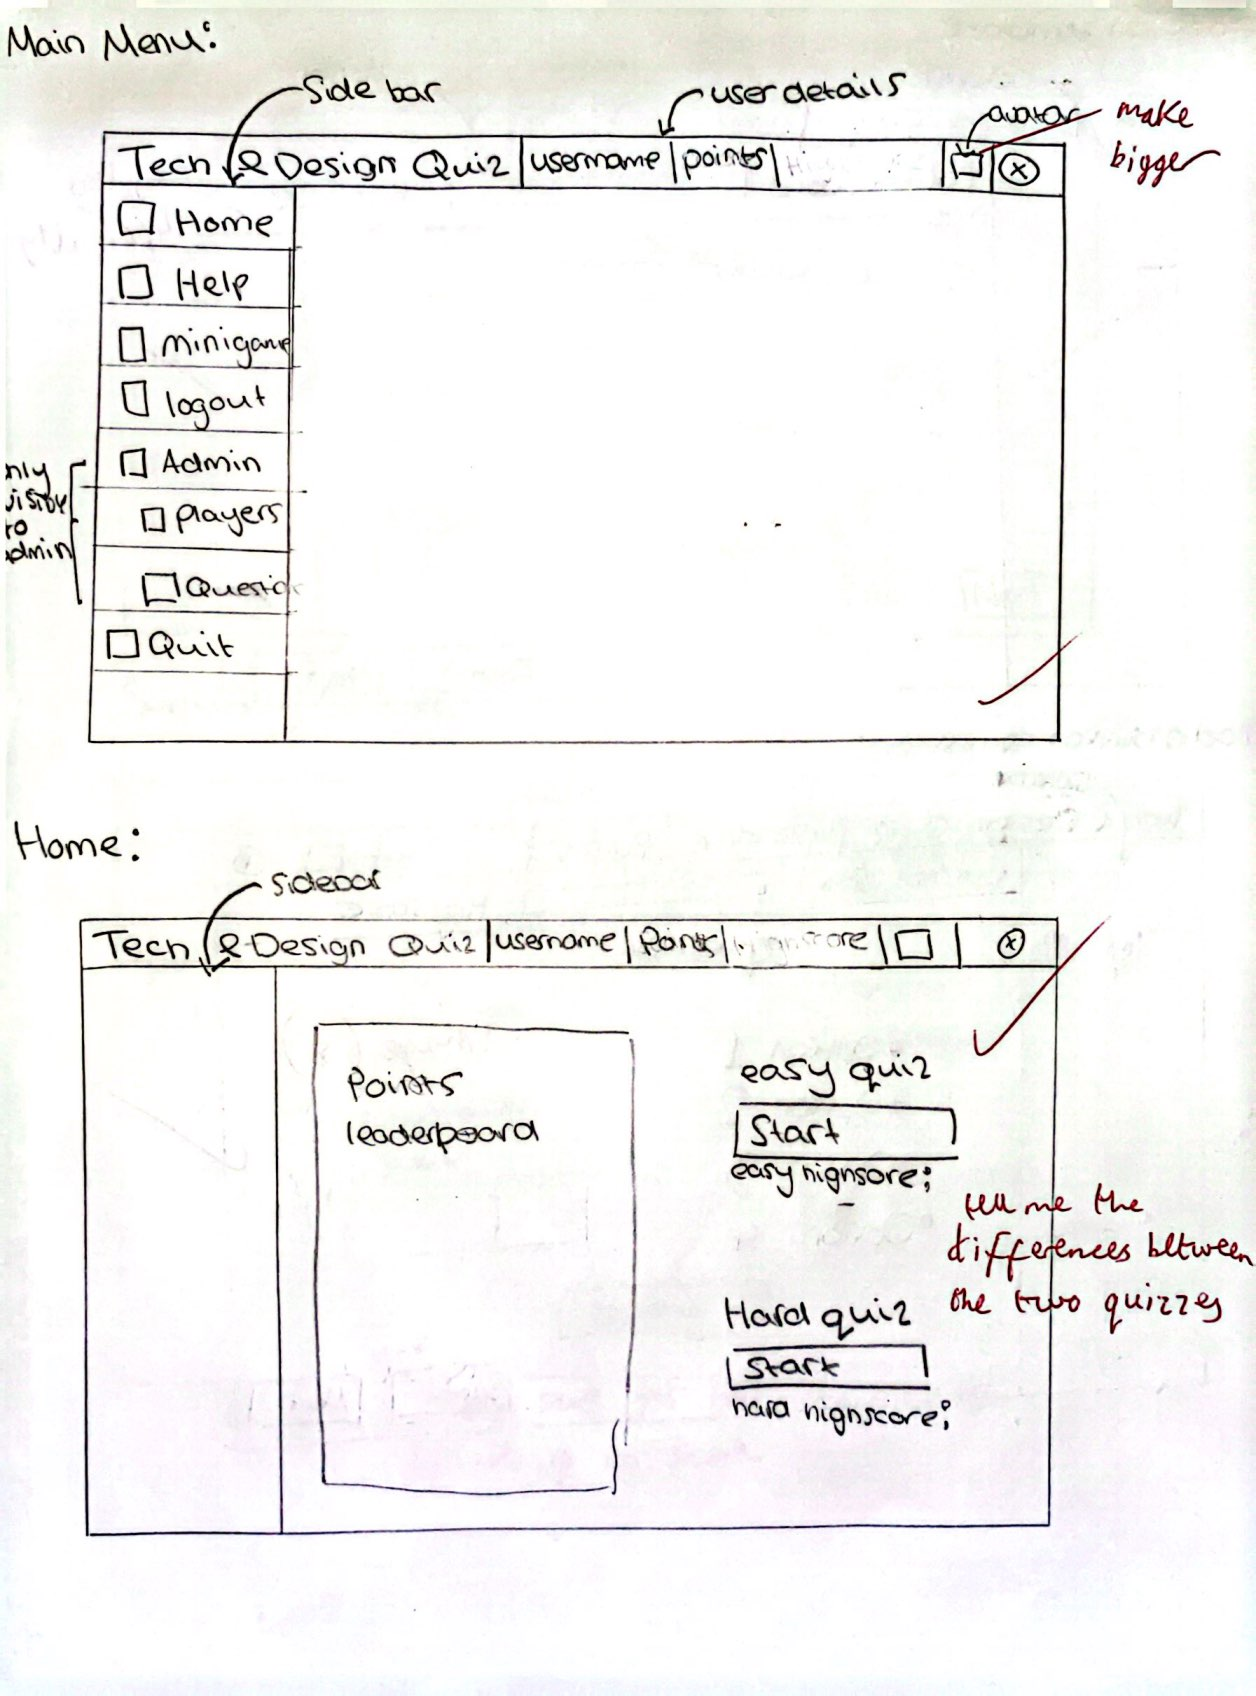 Main Menu:
Side bar
user details
avatar
make
bigger
Tech & Design Quiz username points
Home
Help
minigame
logout
Admin
players
Quit
only
to
admin
Home:
sidebar
Tech & Design Quiz username Points
Points
leaderboard
easy quiz
Start
easy highsore:
tell me the
differences between
the two quizzes
Hard quiz
Start
hard highscore: